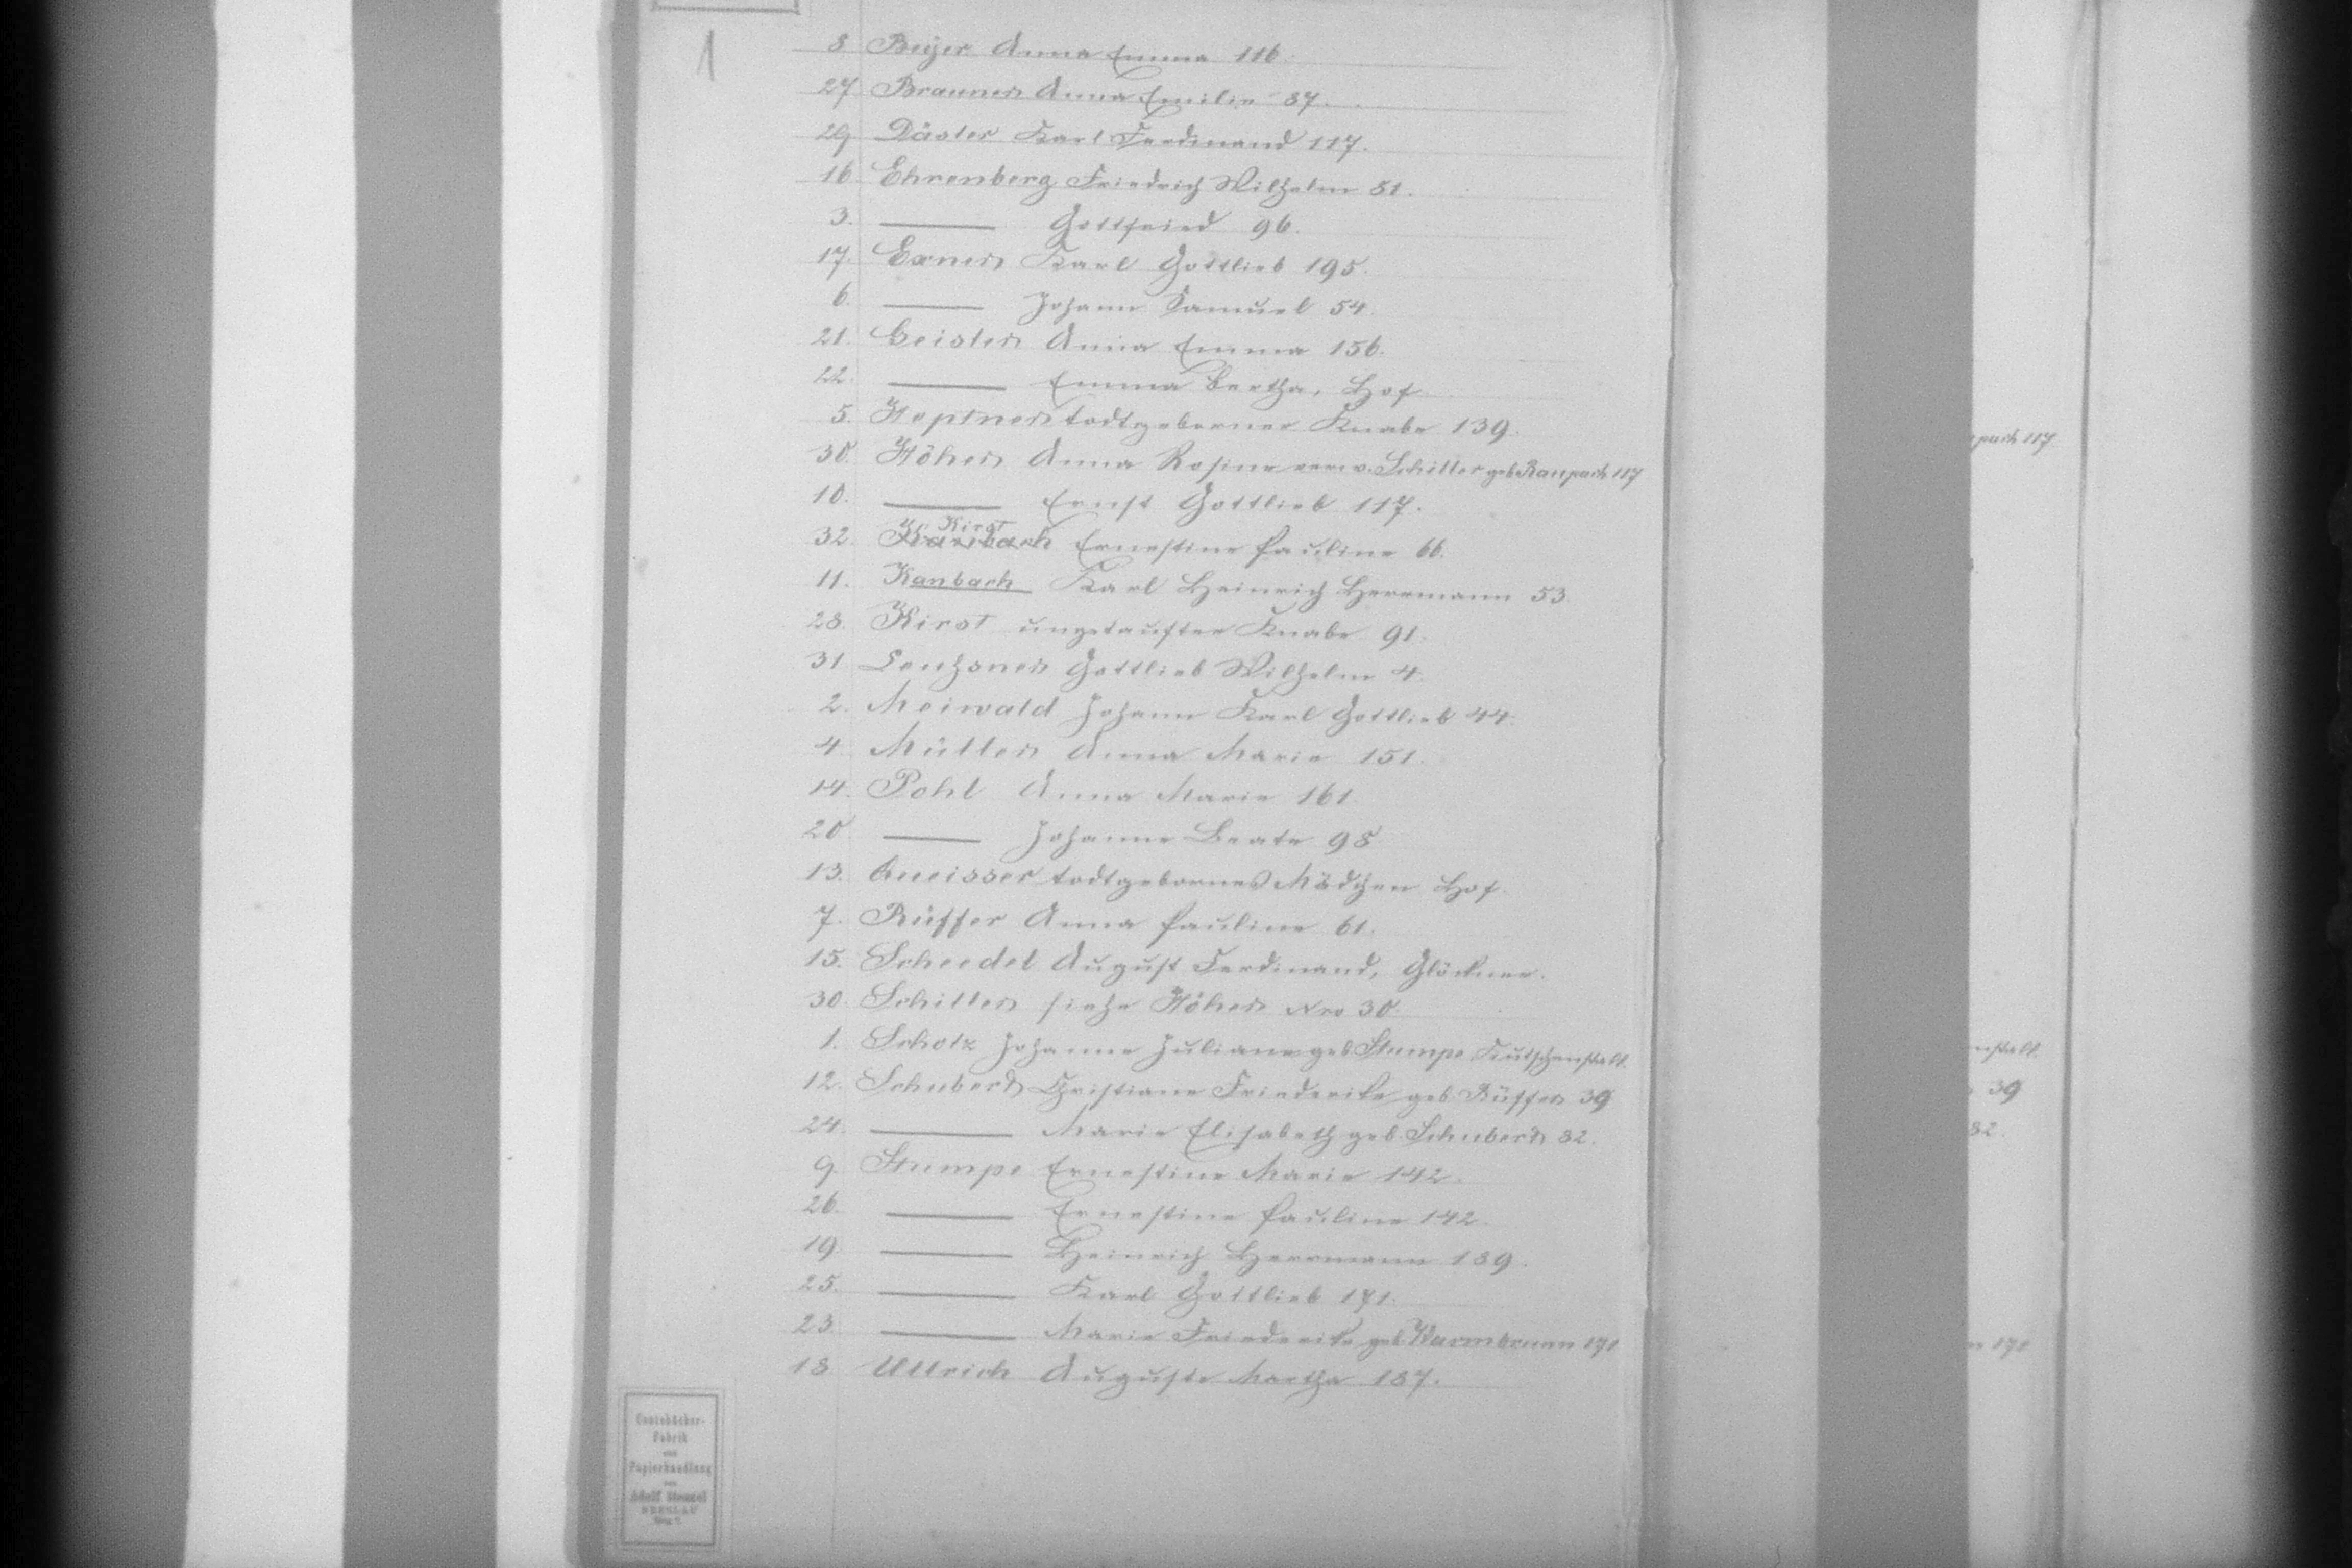 1
8 Beyer Anna Emma 116.
27 Brauner Anna Emilie 87.
29 Däsler Karl Ferdinand 117.
16 Ehrenberg Friedrich Wilhelm 51.
3. ——— Gottfried 96.
17. Exner Karl Gottlieb 195.
6. ——— Johann Samuel 54.
21. Geisler Anna Emma 156.
22. ——— Emma Bertha, Hof
5. Heptner todtgeborner Knabe 139.
30. Höher Anna Rosine verw. Schiller geb Raupach 117
10. ——— Ernst Gottlieb 117.
Kirst
32. Kanbach Ernestine Pauline 66.
11. Kanbach Karl Heinrich Herrmann 53.
28. Kirst ungetaufter Knabe 91.
31 Gottlieb Wilhelm 4.
2. Meiwald Johann Karl Gottlieb 44.
4. Müller Anna Marie 151.
14. Pohl Anna Marie 161.
20 ——— Johanne Beate 98
13. Queisser todtgebornes Mädchen Hof.
7. Rüffer Anna Pauline 61.
15. Scheedel August Ferdinand, Glöckner.
30. Schiller siehe Höher Nro 30.
1. Scholz Johanne Juliane geb Stumpe
12. Schubert Christiane Friederike geb Rüffer 39
24. ——— Marie Elisabeth geb. Schubert 82.
9. Stumpe Ernestine Marie 142.
26. ——— Ernestine Pauline 142.
19. ——— Heinrich Herrmann 189.
25. ——— Karl Gottlieb 171.
23. ——— Marie Friederike geb Warmbrunn 171
18 Ullrich Auguste Martha 187.
Contobücher-
Fabrik
und
Papierhandlung
von
Adolf Stenzel
BRESLAU
Ring 7.
pach 117
nstalt.
39
82.
n 171